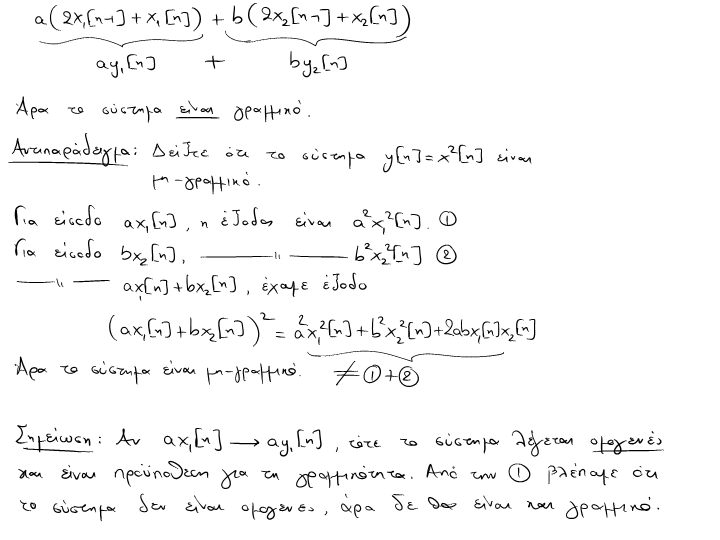 a(2x₁[n-1] + x₁[n]) + b(2x₂[n-1] + x₂[n])
ay₁[n] + by₂[n]
Άρα το σύστημα είναι γραμμικό.
Αντιπαράδειγμα: Δείξτε ότι το σύστημα y[n] = x²[n] είναι
μη-γραμμικό.
Για είσοδο ax₁[n], η έξοδος είναι a²x₁²[n]. ①
Για είσοδο bx₂[n], —— " —— b²x₂²[n] ②
—— " —— ax₁[n] + bx₂[n], έχουμε έξοδο
(ax₁[n] + bx₂[n])² = a²x₁²[n] + b²x₂²[n] + 2abx₁[n]x₂[n]
Άρα το σύστημα είναι μη-γραμμικό. ≠ ① + ②
Σημείωση: Αν ax₁[n] → ay₁[n], τότε το σύστημα λέγεται ομογενές
και είναι προϋπόθεση για τη γραμμικότητα. Από την ① βλέπουμε ότι
το σύστημα δεν είναι ομογενές, άρα δε θα είναι και γραμμικό.